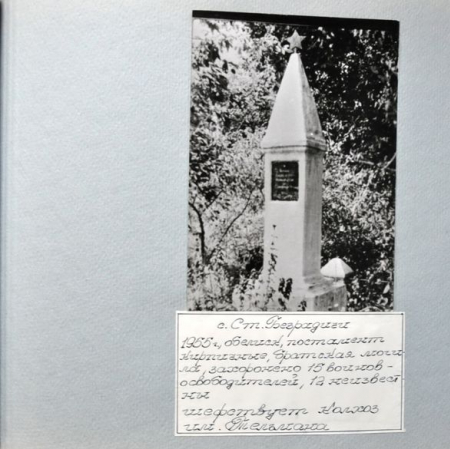 с. Ст. Беградиги
1955г, обелиск, постамент
кирпичные, братская моги-
ла, захоронено 15 воинов-
освободителей, 12 неизвест
ны
шефствует колхоз
им. Тельмана